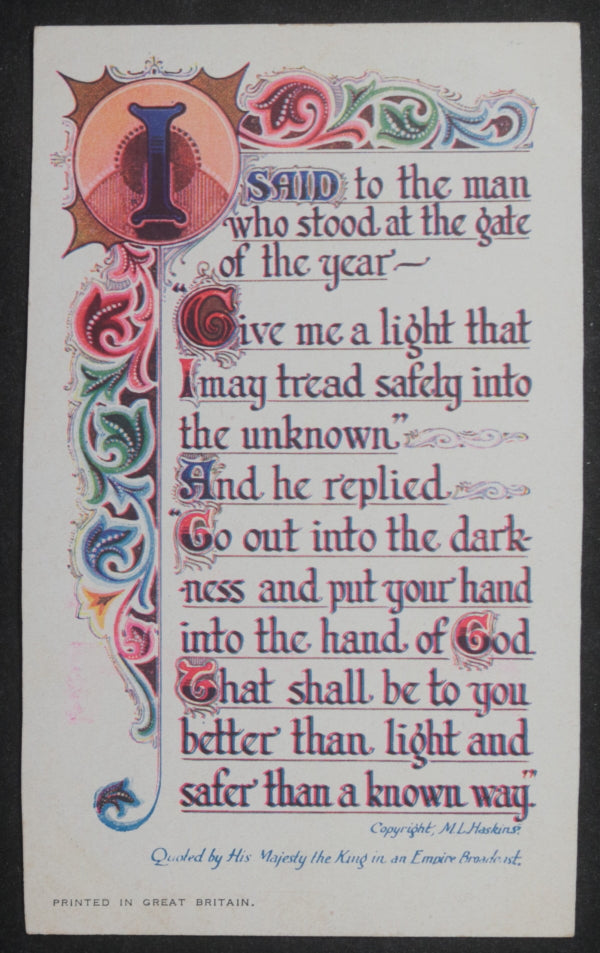 I SAID to the man
who stood at the gate
of the year~
"Give me a light that
I may tread safely into
the unknown"
And he replied
"Go out into the dark-
-ness and put your hand
into the hand of God
That shall be to you
better than light and
safer than a known way."
Copyright, M.L.Haskins.
Quoted by His Majesty the King in an Empire Broadcast.
PRINTED IN GREAT BRITAIN.